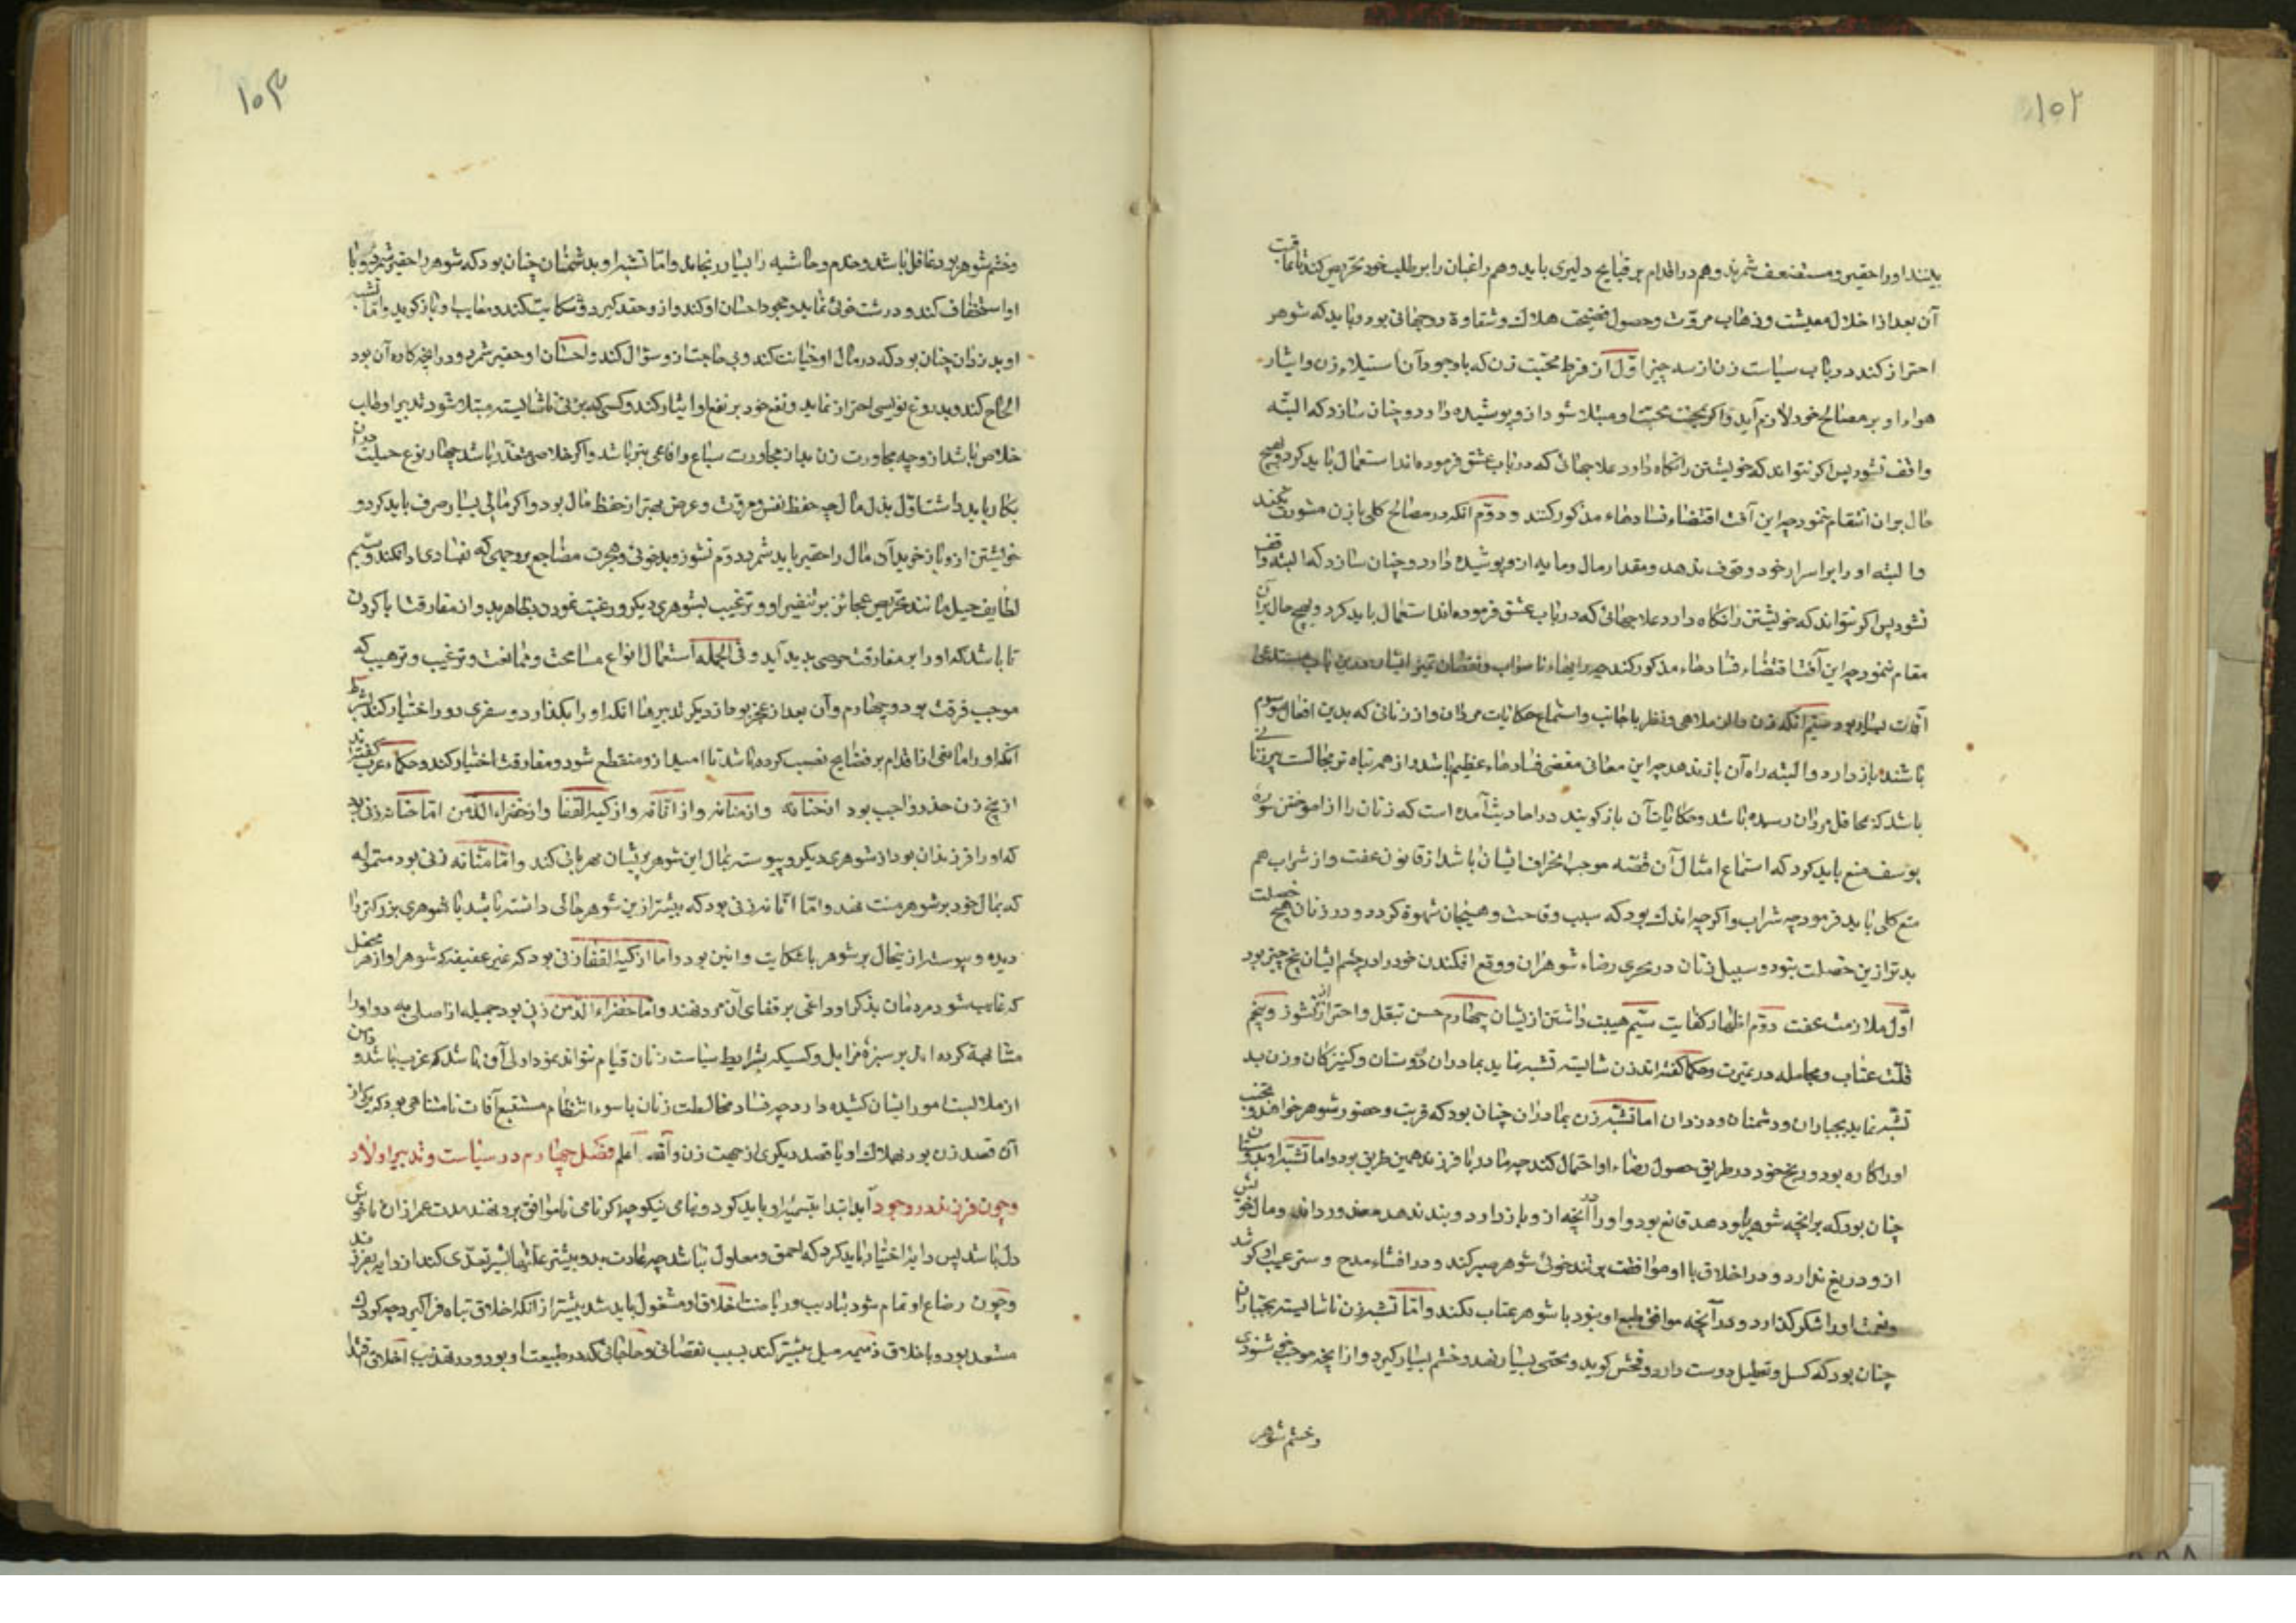 ۱۰۲
بینند او را حقیر و مستضعف شمرند و هم در اقدام بر قبایح دلیری یابد و هم راغبان را بر طلب خود تحریص کند تا عاقبت
آن بعد از اختلال معیشت و ذهاب مروّت و حصول فضیحت هلاک و شقاوة دوجهانی بود و باید که شوهر
احتراز کند در باب سیاست زن از سه چیز اوّل از فرط محبّت زن که با وجود آن استیلاء زن و ایثار
هواء او بر مصالح خود لازم آید و اگر بمحنت محبّت او مبتلا شود ازو پوشیده دارد و چنان سازد که البتّه
واقف نشود پس اگر نتواند که خویشتن را نگاه دارد علاجهائی که در باب عشق فرموده‌اند استعمال باید کرد و بهیچ
حال بران انتقام ننمود چه این آفت اقتضاء فسادهاء مذکور کنند و دوّم انکه در مصالح کلی با زن مشورت نکند
و البته او را بر اسرار خود وقوف ندهد و مقدار مال و مایه ازو پوشیده دارد و چنان سازد که البته واقف
نشود پس اکر نتواند که خویشتن را نکاه دارد علاجهائی که در باب عشق فرموده‌اند استعمال باید کرد و بهیچ حال بر آن
مقام ننمود چه این آفت اقتضاء فسادهاء مذکور کند چه رایهاء ناصواب و نقصان تمیز ایشان درین باب مستدعی
آفات بسیار بود سیّم انکه زن را از ملاهی و نظر باجانب و استماع حکایات مردان و از زنانی که بدین افعال موسوم
باشند باز دارد و البته راه آن باز ندهد چه این معانی مقضی فسادهاء عظیم باشد و از همه تباه تر مجالست پیرزنانی
باشد که بمحافل مردان رسیده باشد و حکایات آن باز کویند در احادیث آمده است که زنان را از اموختن سورهٔ
یوسف منع باید کرد که استماع امثال آن قصّه موجب انحراف ایشان باشد از قانون عفت و از شراب هم
منع کلی باید فرمود چه شراب و اکرچه اندک بود که سبب وقاحت و هیجان شهوة کردد و در زنان هیچ خصلت
بدتر ازین خصلت نبود و سبیل زنان در تحری رضاء شوهران و وقع افکندن خود را در چشم ایشان پنج چیز بود
اوّل ملازمت عفت دوّم اظهار کفایت سیّم هیبت داشتن از یشان چهارم حسن تبعّل و احتراز از نشوز و پنجم
قلّت عتاب و مجامله در غیرت و حکما کفته‌اند زن شایسته تشبه نماید بمادران و دوستان و کنیزکان و زن بد
تشبّه نماید بجباران و دشمنان و دزدان اما تشبّه زن بمادران چنان بود که قربت و حضور شوهر خواهد و
او را کاره بود و رنج خود در طریق حصول رضاء او احتمال کند چه مادر با فرزند همین طریق بود و اما تشبّه او بدوستان
چنان بود که برانچه شوهر باو دهد قانع بود و او را در آنچه ازو باز دارد و بدو ندهد معذور داند و مال خویش
ازو دریغ ندارد و در اخلاق با او موافقت بر تند خوئی شوهر صبر کند و در افشاء مدح و ستر عیب او کوشد
و نعمت او را شکر کذارد و در آنچه موافق طبع او نبود با شوهر عتاب نکند و امّا تشبه زن ناشایسته بجبّاران
چنان بود که کسل و تعطیل دوست دارد و فحش کوید و تجنّی بسیار نهد و خشم بسیار کیرد و از آنچه موجب خشنودی
و خشم شوهر
۱۰۳
و خشم شوهر بود غافل باشد و خدم و حاشیه را بسیار رنجاند و امّا تشبّه او بدشمنان چنان بود که شوهر را حقیر شمرد و با
او استخفاف کند و درشت خوئی نماید و جحود احسان او کند و ازو حقد کیرد و شکایت کند و معایب او باز کوید و امّا تشبه
او بدزدان چنان بود که در مال او خیانت کند و بی حاجت ازو سؤال کند و احسان او حقیر شمرد و در انچه کاره آن بود
الحاح کند و بدروغ دوستی اظهار نماید و نفع خود بر نفع او ایثار کند و کسی که بزنی ناشایسته مبتلا شود تدبیر او طلب
خلاص باشد ازو چه مجاورت زن بد از مجاورت سباع و افاعی بتر باشد و اکر خلاص متعذّر باشد چهار نوع حیلت در آن
بکار باید داشت اوّل بذل مال چه حفظ نفس و مروّت و عرض بهتر از حفظ مال بود و اکر مالی بسیار صرف باید کرد و
خویشتن ازو باز خرید آن مال را حقیر باید شمرد دوّم نشوز و بدخوئی و هجرت مضاجع بر وجهی که بفسادی ادا نکند و سیّم
لطایف حیل مانند تحریص عجائز بر تنفیر او و ترغیب بشوهری دیکر و رغبت نمودن بظاهر بدو و از مفارقت ابا کردن
تا باشد که او را بر مفارقت حرصی پدید آید و فی الجمله استعمال انواع مسامحت و ممانعت و ترغیب و ترهیب که
موجب فرقت بود و چهارم و آن بعد از عجز بود از دیکر تدبیرها انکه او را بکذارد و سفری دور اختیار کند بشرط
آنکه او را مانعی از اقدام بر فضایح نصب کرده باشد تا امید ازو منقطع شود و مفارقت اختیار کند و حکماء عرب کفته‌اند
از پنج زن حذر واجب بود از حنّانه و از منّانه و از انّانه و از کیة القفا و از خضراء الدّمن اما حنّانه زنی بود
که او را فرزندان بود از شوهری دیکر و پیوسته بمال این شوهر بریشان مهربانی کند و امّا منّانه زنی بود متموّله
که بمال خود بر شوهر منت نهد و امّا انّانه زنی بود که بیشتر ازین شوهر حالی داشته باشد یا شوهری بزرکتر را
دیده و پیوسته از ینحال بر شوهر با شکایت و انین بود و اما کیة القفا زنی بود که غیر عفیفه که شوهر او از هر محفل
که غایب شود مردمان بذکر او داغی بر قفای آن مرد نهند و اما خضراء الدّمن زنی بود جمیله از اصلی بد و او را
مشابهة کرده‌اند بر سبزهٔ مزابل و کسیکه بشرایط سیاست زنان قیام نتواند نمود اولی آن باشد که عزب باشد و دامن
از ملابست امور ایشان کشیده دارد چه فساد مخالطت زنان با سوء انتظام مستتبع آفات نامتناهی بود که یکی از
آن قصد زن بود بهلاک او یا قصد دیکری از جهت زن و اللّه اعلم فصل چهارم در سیاست و تدبیر اولاد
و چون فرزند در وجود آید ابتدا بتسمیهٔ او باید کرد و بنامی نیکو چه اکر نامی ناموافق برو نهند مدت عمر از آن ناخوش
دل باشد پس دایه اختیار باید کرد که احمق و معلول نباشد چه عادت بد و بیشتر علّتها بشیر تعدّی کند از دایه بفرزند
و چون رضاع او تمام شود بتادیب و ریاضت اخلاق او مشغول باید شد بیشتر از انکه اخلاق تباه فراکیرد چه کودک
مستعد بود و باخلاق ذمیمه میل بیشتر کند بسبب نقصانی و حاجاتی که در طبیعت او بود و در تهذیب اخلاق اقتدا